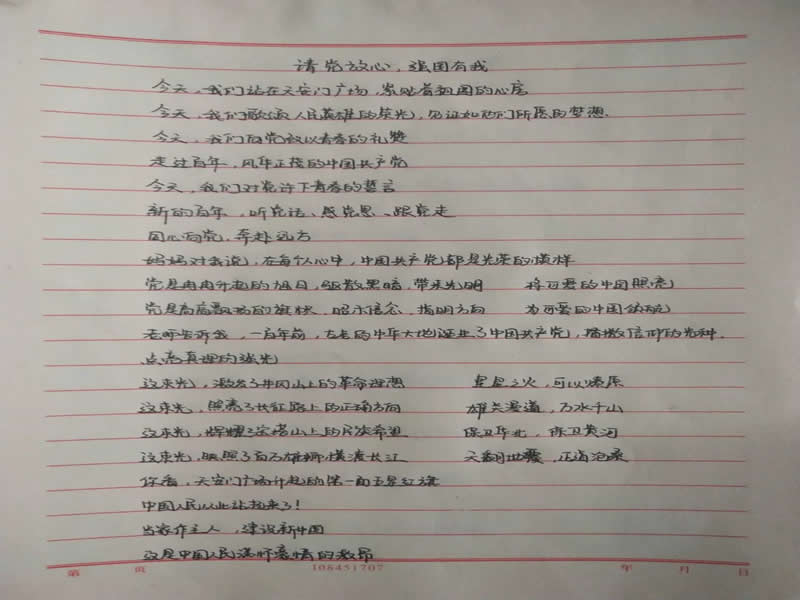 请党放心，强国有我
今天，我们站在天安门广场，紧贴着祖国的心房
今天，我们歌颂人民英雄的荣光，见证如他们所愿的梦想.
今天，我们向党致以青春的礼赞
走过百年，风华正茂的中国共产党
今天，我们对党许下青春的誓言
新的百年，听党话、感党恩、跟党走
同心向党，奔赴远方
妈妈对我说，在每个人心中，中国共产党都是光荣的模样
党是冉冉升起的旭日，驱散黑暗，带来光明 将可爱的中国照亮
党是高高飘扬的旗帜，昭示信念，指明方向 为可爱的中国领航
老师告诉我，一百年前，古老的中华大地诞生了中国共产党，播撒信仰的光种.
点亮真理的强光
这束光，激发了井冈山上的革命理想 星星之火，可以燎原
这束光，照亮了长征路上的正确方向 雄关漫道，万水千山
这束光，辉耀了宝塔山上的民族希望 保卫华北，保卫黄河
这束光，映照了百万雄师横渡长江 天翻地覆，正道沧桑
你看，天安门广场升起的第一面五星红旗
中国人民从此站起来了！
当家作主人，建设新中国
这是中国人民满怀豪情的激昂
第 页 108451707 年 月 日